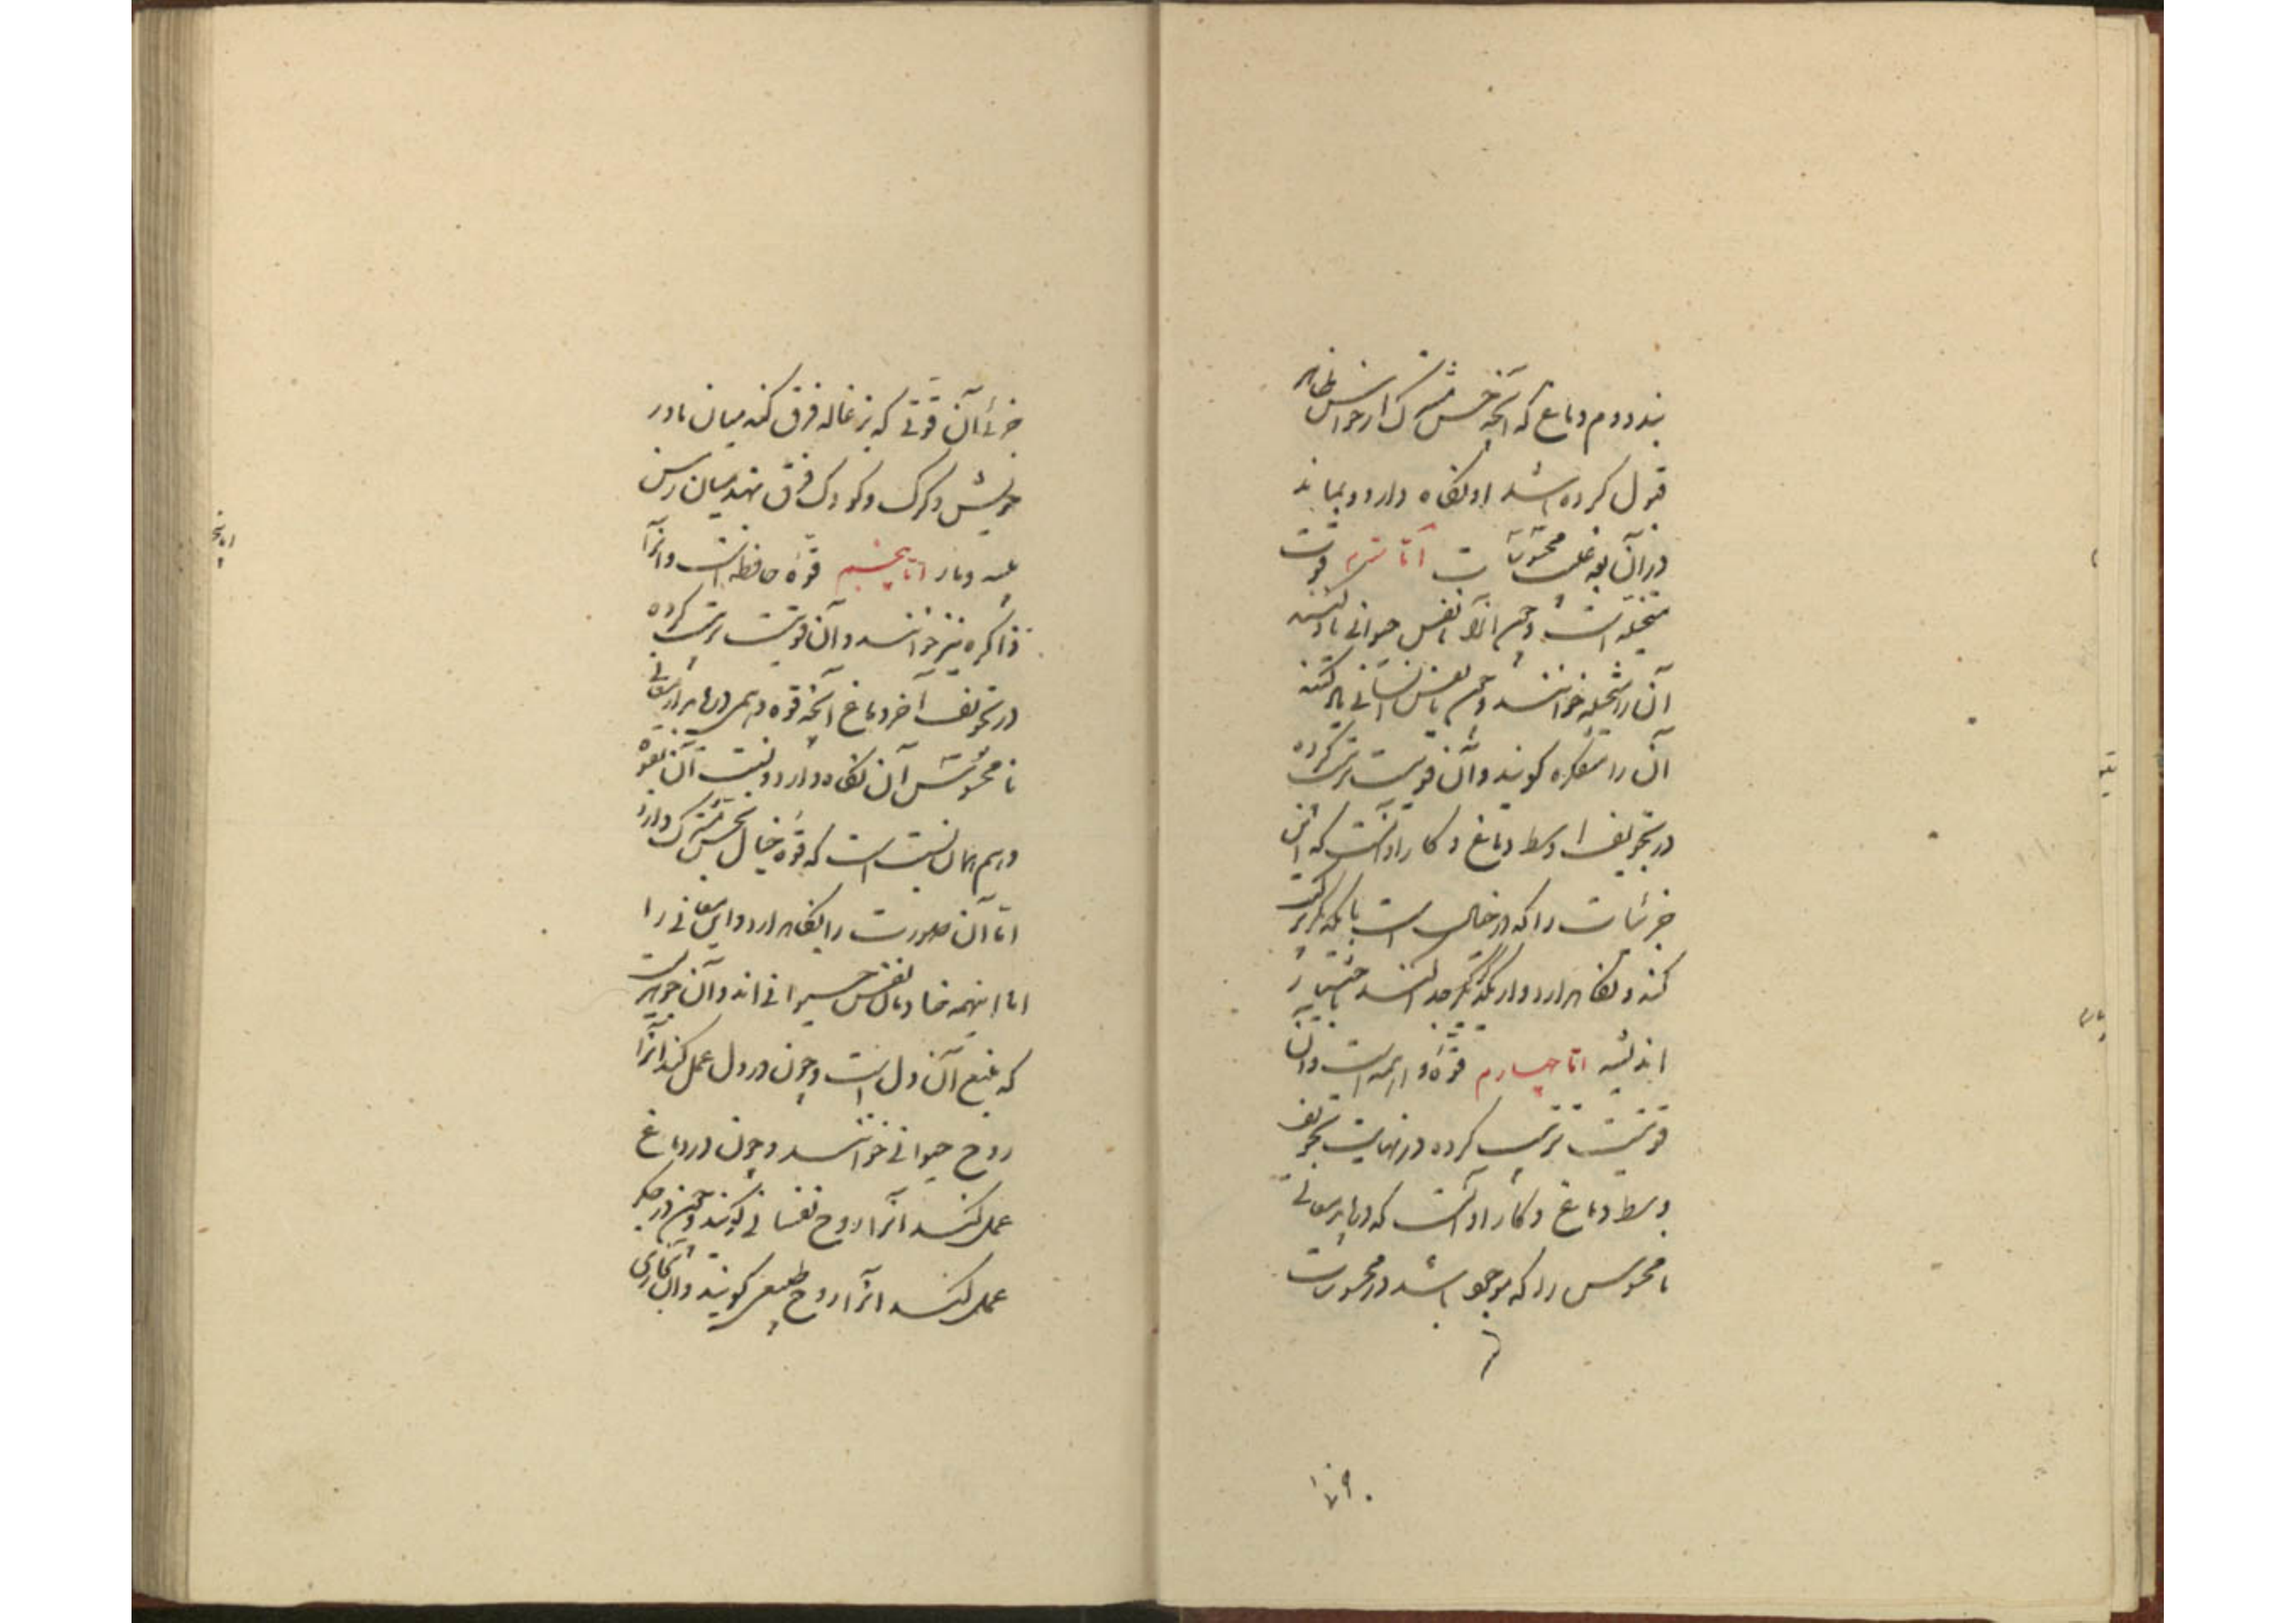 بنددوم دماغ که آنچه حس مشترک از حواس ظاهر
قبول کرده باشد او نگاه دارد و بماند
در آن بعد غیبت محسوسات اما سیم قوت
متخیله است و چون او را با نفس حیوانی یاد کنند
آن را متخیله خوانند و چون با نفس انسانی یاد کنند
آن را متفکره گویند و آن قوتیست ترتیب کرده
در تجویف اوسط دماغ و کار او آنست که این
جزئیات را که در خیال است با یکدیگر ترکیب
کند و نگاه دارد و از یکدیگر جدا کند باختیار
اندیشه اما چهارم قوة واهمه است و آن
قوتیست ترتیب کرده در نهایت تجویف
وسط دماغ و کار او آنست که دریابد معانی
نامحسوس را که موجود باشد در محسوسات
جزئی آن قوتی که بزغاله فرق کند میان مادر
خویش و گرگ و کودک فرق نهد میان رسن
پیسه و مار اما پنجم قوة حافظه است و آنرا
ذاکره نیز خوانند و آن قوتیست ترتیب کرده
در تجویف آخر دماغ آنچه قوه وهمی دریابد از معانی
نامحسوس آن نگاه دارد و نسبت آن بقوة
وهم همان نسبت است که قوة خیال بحس مشترک دارد
اما آن صورت را نگاه دارد و این معانی را
اما اینهمه خادمان نفس حیوانی اند و آن جوهریست
که منبع آن دل است و چون در دل عمل کند آنرا
روح حیوانی خوانند و چون در دماغ
عمل کند آنرا روح نفسانی گویند و چون در جگر
عمل کند آنرا روح طبیعی گویند و آن بخاری